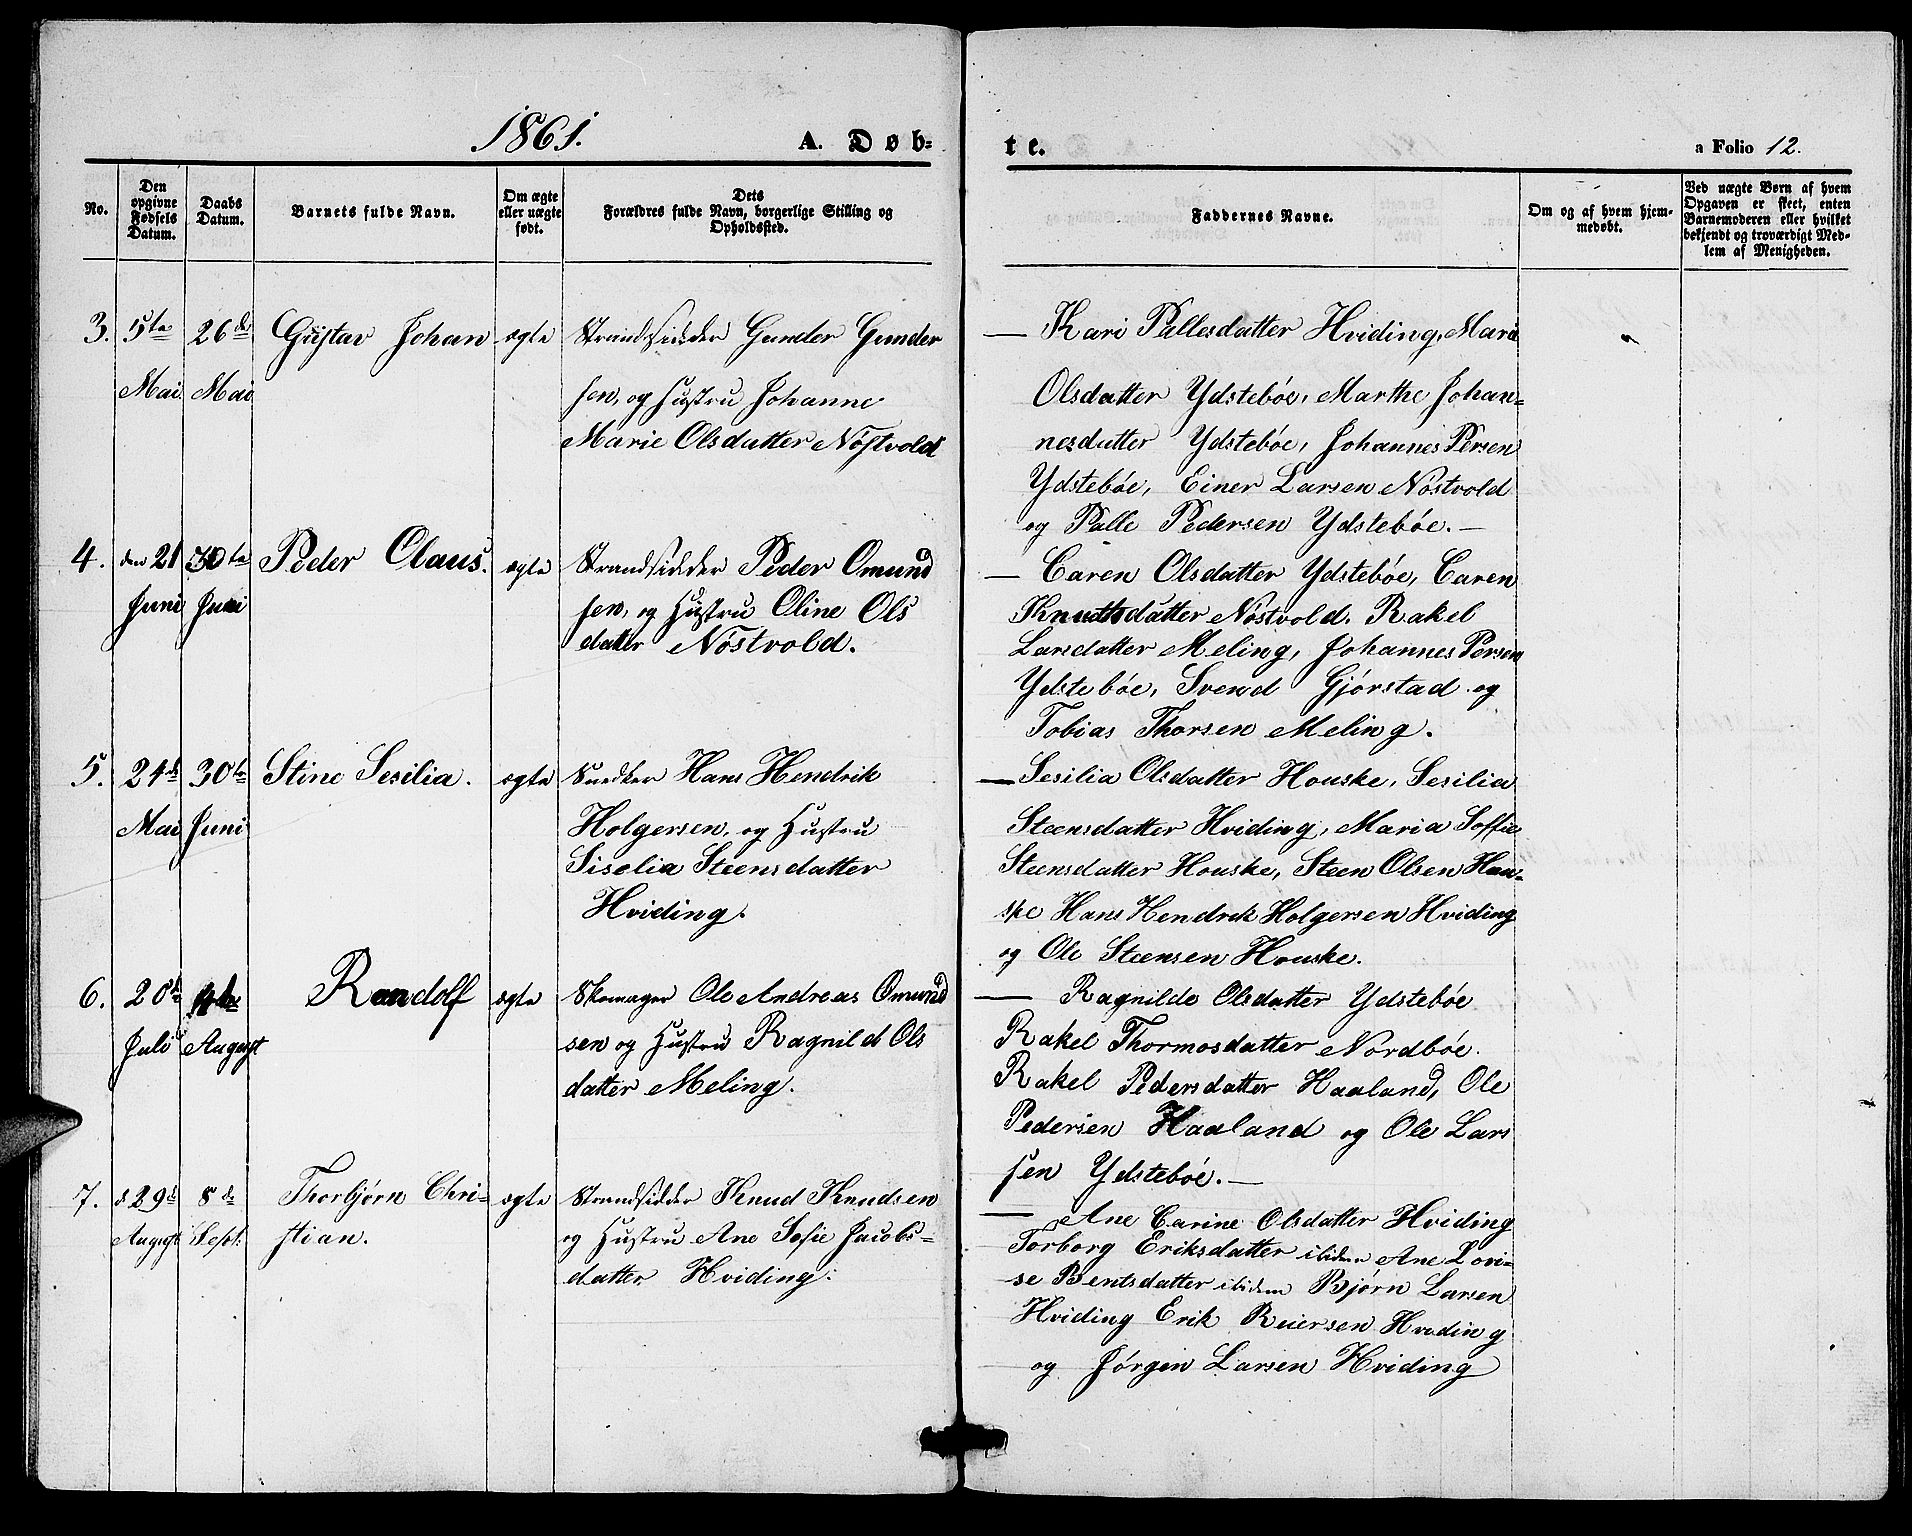 1861. A. Døb-
te. a Folio 12.
No.
Den opgivne Fødsels Datum.
Daabs Datum.
Barnets fulde Navn.
Om ægte eller uægte født.
Dets Forældres fulde Navn, borgerlige Stilling og Opholdssted.
Faddernes Navne.
Om og af hvem hjemmedøbt.
Ved uægte Børn af hvem Opgaven er skeet, enten Barnemoderen eller hvilket bekjendt og troværdigt Medlem af Menigheden.
3. 5te 26de Gustav Johan ægte Strandsidder Gunder Gunder
Mai Mai sen, og Hustru Johanne
Marie Olsdatter Nøstvold
— Kari Pallesdatter Hviding, Mari
Olsdatter Ydstebøe, Marthe Johan-
nesdatter Ydstebøe, Johannes Persen
Ydstebøe, Einer Larsen Nøstvold
og Palle Pedersen Ydstebøe. —
4. den 21 30te Peder Claus. ægte Strandsidder Peder Omund
Juni Juni sen, og Hustru Oline Ols
datter Nøstvold.
— Caren Olsdatter Ydstebøe, Caren
Knudtsdatter Nøstvold. Rakel
Larsdatter Meling, Johannes Persen
Ydstebøe, Svend Gjørstad og
Tobias Thorsen Meling.
5. 24de 30te Stine Sesilia. ægte Snedker Hans Hendrik
Mai Juni Holgersen, og Hustru
Siselia Steensdatter
Hviding.
— Sesilia Olsdatter Houske, Sesilia
Steensdatter Hviding, Maria Soffie
Steensdatter Houske, Steen Olsen Hou-
ske Hans Hendrik Holgersen Hviding
og Ole Steensen Houske.
6. 20de 4de Randolf ægte Skomager Ole Andreas Omund
Juli August sen og Hustru Ragnild Ols
datter Meling.
— Ragnilde Olsdatter Ydstebøe
Rakel Thormosdatter Nordbøe.
Rakel Pedersdatter Haaland, Ole
Pedersen Haaland og Ole Lars
sen Ydstebøe. —
7. d 29de 8de Thorbjørn Chri- ægte Strandsidder Knud Knudsen
August Sept: stian. og Hustru Ane Sofie Jacobs-
datter Hviding.
— Ane Carine Olsdatter Hviding
Torborg Eriksdatter ibidem Ane Lovi-
se Bentsdatter ibidem Bjørn Larsen
Hviding Erik Reiersen Hviding
og Jørgen Larsen Hviding